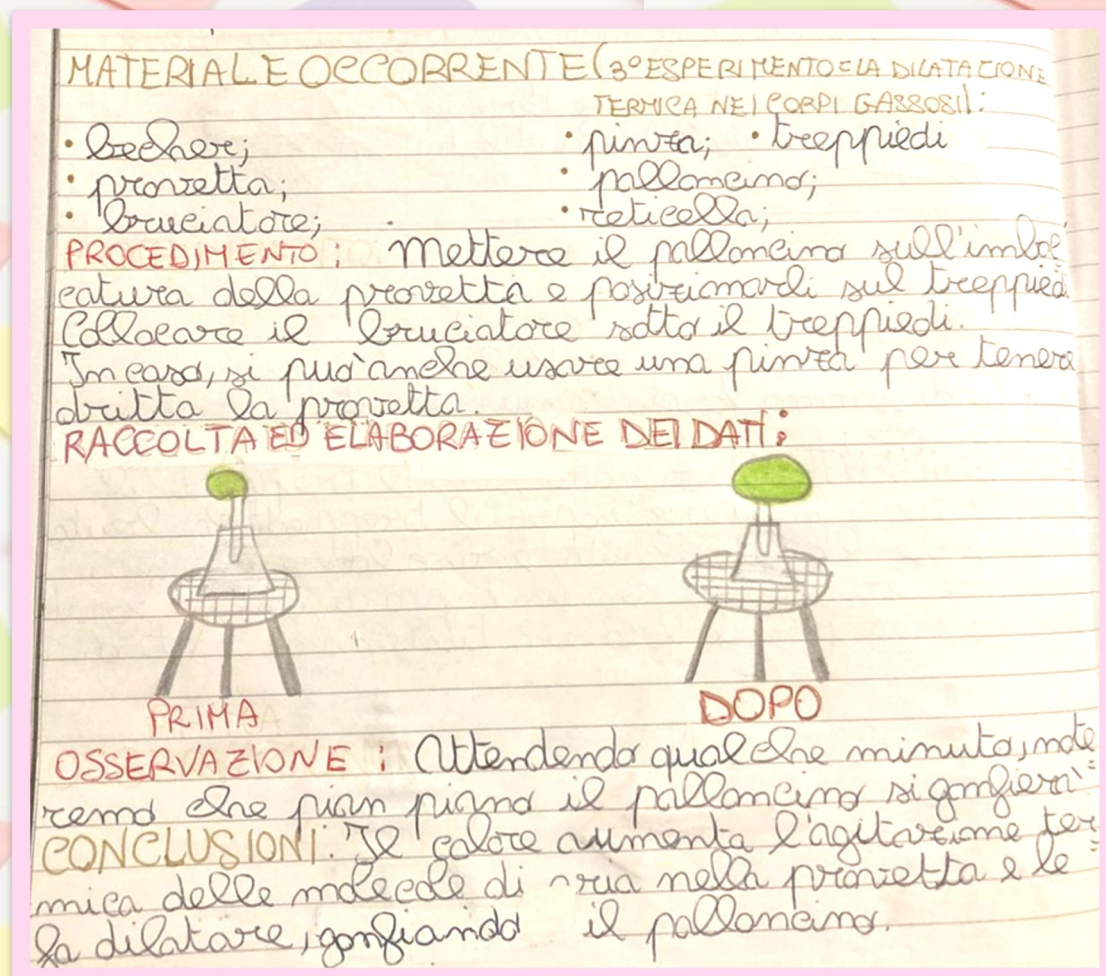 MATERIALE OCCORRENTE (3° ESPERIMENTO: LA DILATAZIONE
TERMICA NEI CORPI GASSOSI):
• becher; • pinza; • treppiedi
• provetta; • palloncino;
• bruciatore; • reticella;
PROCEDIMENTO: Mettere il palloncino sull'imboc
catura della provetta e posizionarli sul treppiedi.
Collocare il bruciatore sotto il treppiedi.
In caso, si può anche usare una pinza per tenere
dritta la provetta.
RACCOLTA ED ELABORAZIONE DEI DATI:
PRIMA DOPO
OSSERVAZIONE: Attendendo qualche minuto, note
remo che pian piano il palloncino si gonfierà.
CONCLUSIONI: Il calore aumenta l'agitazione ter=
mica delle molecole di aria nella provetta e le
fa dilatare, gonfiando il palloncino.